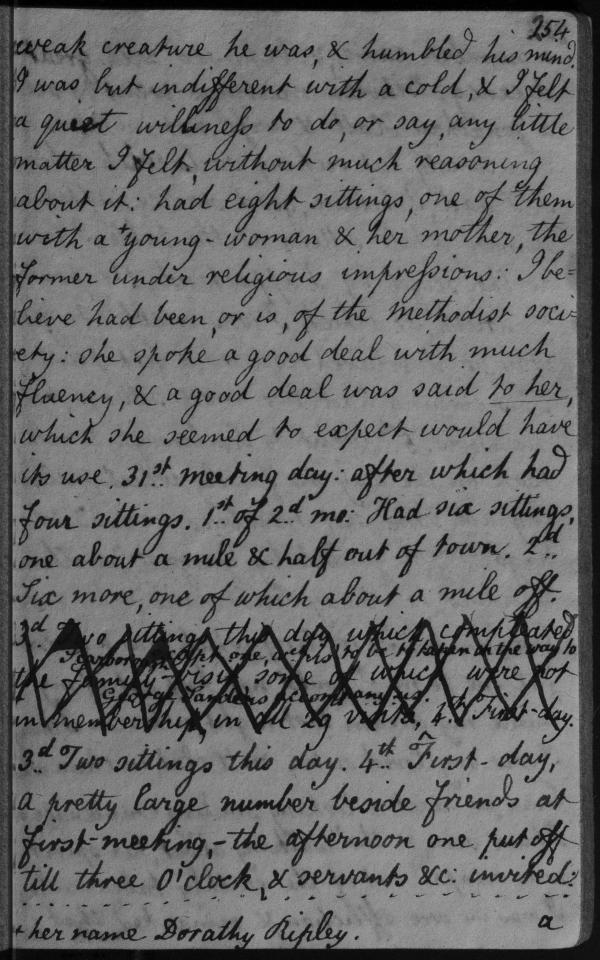 254
weak creature he was, & humbled his mind.
I was but indifferent with a cold, & I felt
a quiet willineſs to do, or say, any little
matter I felt, without much reasoning
about it: had eight sittings, one of them
with a + young-woman & her mother, the
former under religious impreſsions: I be=
lieve had been, or is, of the Methodist soci=
ety: she spoke a good deal with much
fluency, & a good deal was said to her,
which she seemed to expect would have
its use. 31st meeting day: after which had
four sittings. 1st of 2d mo: Had six sittings,
one about a mile & half out of town. 2d
Six more, one of which about a mile off.
3d Two sittings this day which compleated
Scarborough except one, which is to be taken in the way to
the family-visit some of which were not
George Sanders accompanying us.
in membership, in all 29 visits, 4th First-day.
3d Two sittings this day. 4th First-day,
a pretty large number beside friends at
first-meeting,-the afternoon one put off
till three O'clock, & servants &c: invited:
a
+ her name Dorathy Ripley.